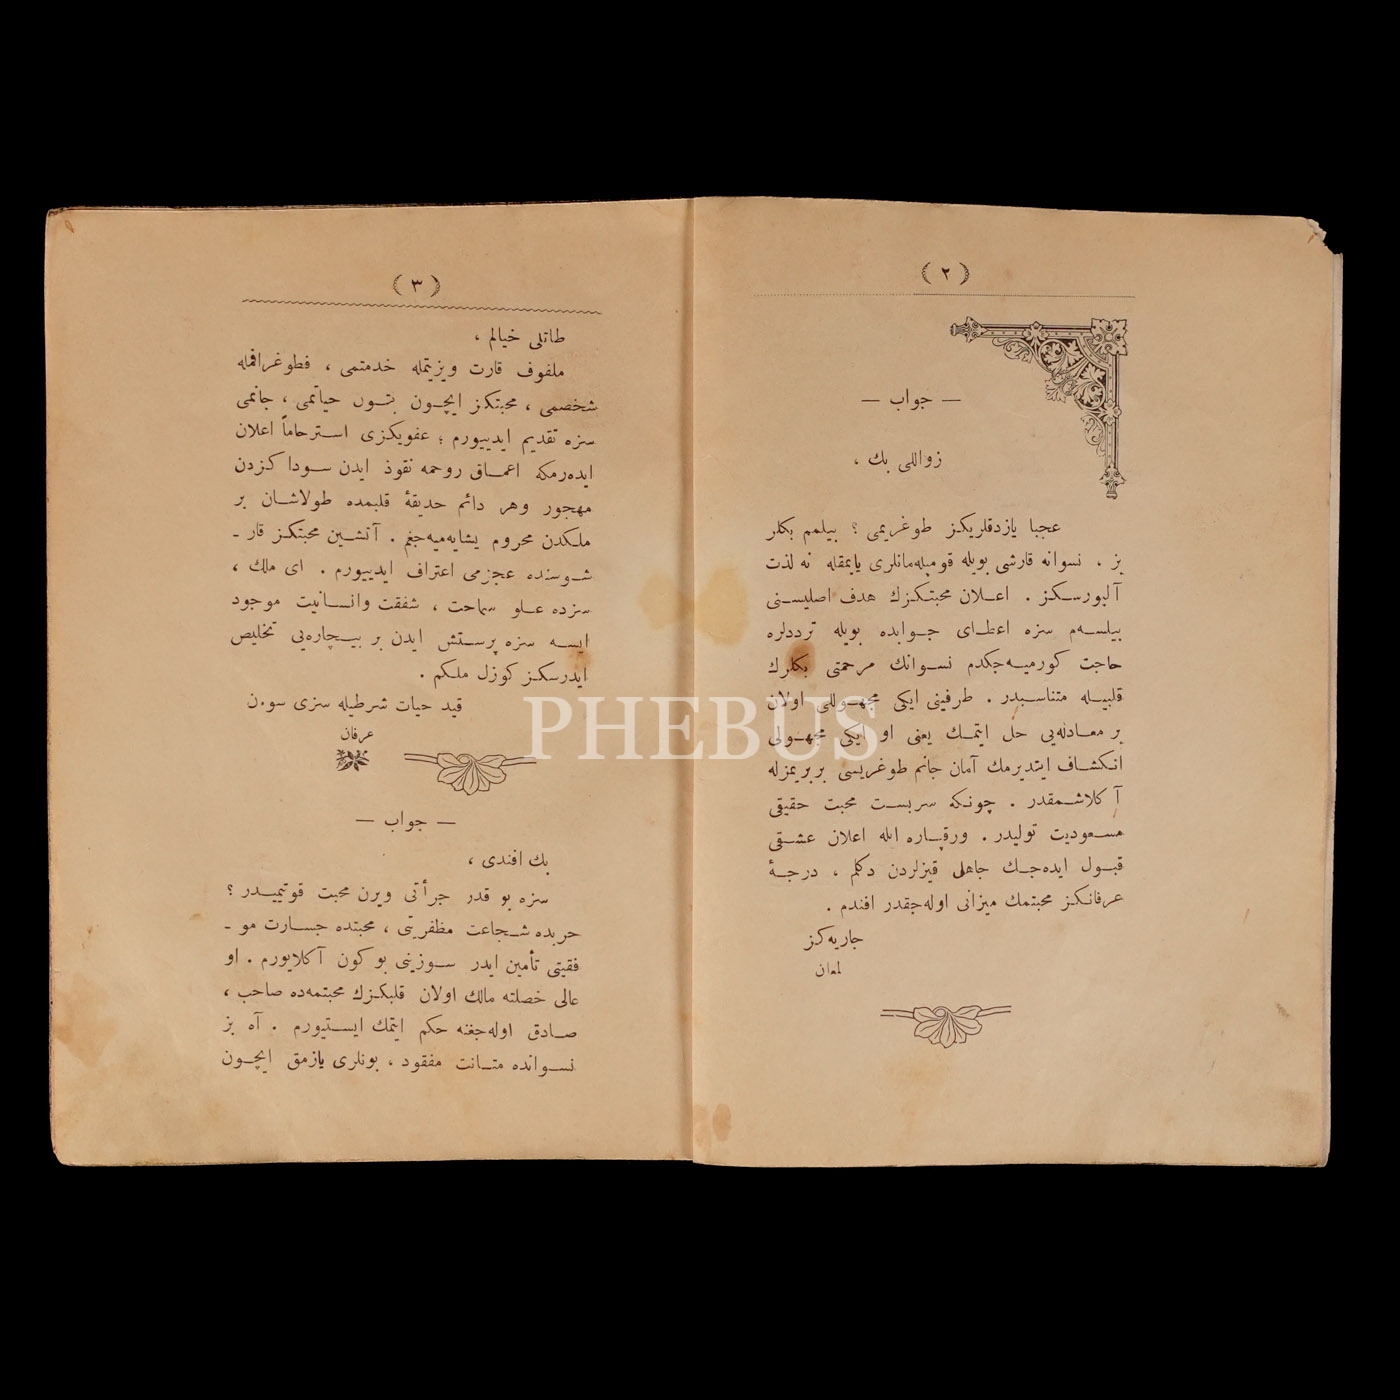 ( ٢ )
— جواب —
زواللی بك ،
عجبا یازدقلریكز طوغریمی ؟ بیلمم بكلر
بز . نسوانه قارشی بویله قومپله‌مانلری یاپمقله نه لذت
آلیورسكز . اعلان محبتكزك هدف اصلیسنی
بیلسه‌م سزه اعطای جوابده بویله ترددلره
حاجت كورمیه‌جكدم نسوانك مرحمتی بكلرك
قلبیله متناسبدر . طرفینی ایكی مجهوللی اولان
بر معادله‌یی حل ایتمك یعنی او ایكی مجهولی
انكشاف ایتدیرمك آمان جانم طوغریسی بربریمزله
آكلاشمقدر . چونكه سربست محبت حقیقی
مسعودیت تولیدر . ورقپاره ایله اعلان عشقی
قبول ایده‌جك جاهل قیزلردن دكلم ، درجۀ
عرفانكز محبتمك میزانی اوله‌جقدر افندم .
جاریه‌كز
لمعان
( ٣ )
طاتلی خیالم ،
ملفوف قارت ویزیتمله خدمتمی ، فطوغرافمله
شخصمی ، محبتكز ایچون بتون حیاتمی ، جانمی
سزه تقدیم ایدییورم ؛ عفویكزی استرحاماً اعلان
ایده‌رمكه اعماق روحمه نفوذ ایدن سوداكزدن
مهجور وهر دائم حدیقۀ قلبمده طولاشان بر
ملكدن محروم یشایه‌میه‌جغم . آتشین محبتكز قار -
شوسنده عجزمی اعتراف ایدییورم . ای ملك ،
سزده علو سماحت ، شفقت وانسانیت موجود
ایسه سزه پرستش ایدن بر بیچاره‌یی تخلیص
ایدرسكز كوزل ملكم .
قید حیات شرطیله سزی سون
عرفان
— جواب —
بك افندی ،
سزه بو قدر جرأتی ویرن محبت قوتیمیدر ؟
حربده شجاعت مظفریتی ، محبتده جسارت مو -
فقیتی تأمین ایدر سوزینی بوكون آكلایورم . او
عالی خصلته مالك اولان قلبكزك محبتمه‌ده صاحب ،
صادق اوله‌جغنه حكم ایتمك ایستیورم . آه بز
نسوانده متانت مفقود ، بونلری یازمق ایچون
PHEBUS